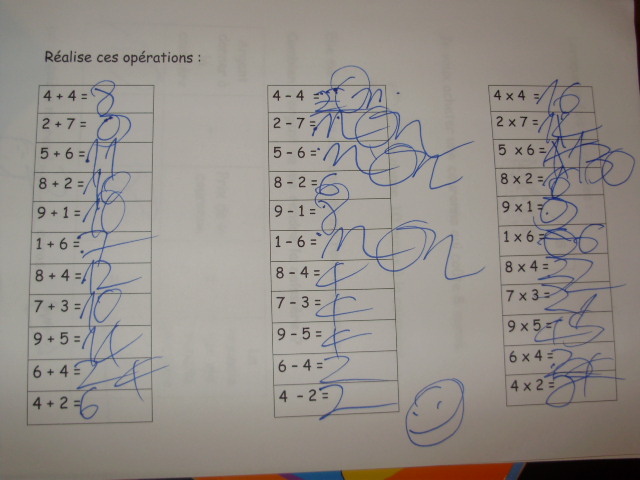 Réalise ces opérations :
4 + 4 = 8 4 - 4 = 4 x 4 = 16
2 + 7 = 9 2 - 7 = non 2 x 7 = 14
5 + 6 = 11 5 - 6 = non 5 x 6 = 30
8 + 2 = 10 8 - 2 = 6 8 x 2 =
9 + 1 = 10 9 - 1 = 8 9 x 1 = 9
1 + 6 = 7 1 - 6 = non 1 x 6 = 6
8 + 4 = 12 8 - 4 = 4 8 x 4 = 32
7 + 3 = 10 7 - 3 = 4 7 x 3 = 21
9 + 5 = 14 9 - 5 = 4 9 x 5 = 45
6 + 4 = 24 6 - 4 = 2 6 x 4 =
4 + 2 = 6 4 - 2 = 2 4 x 2 =